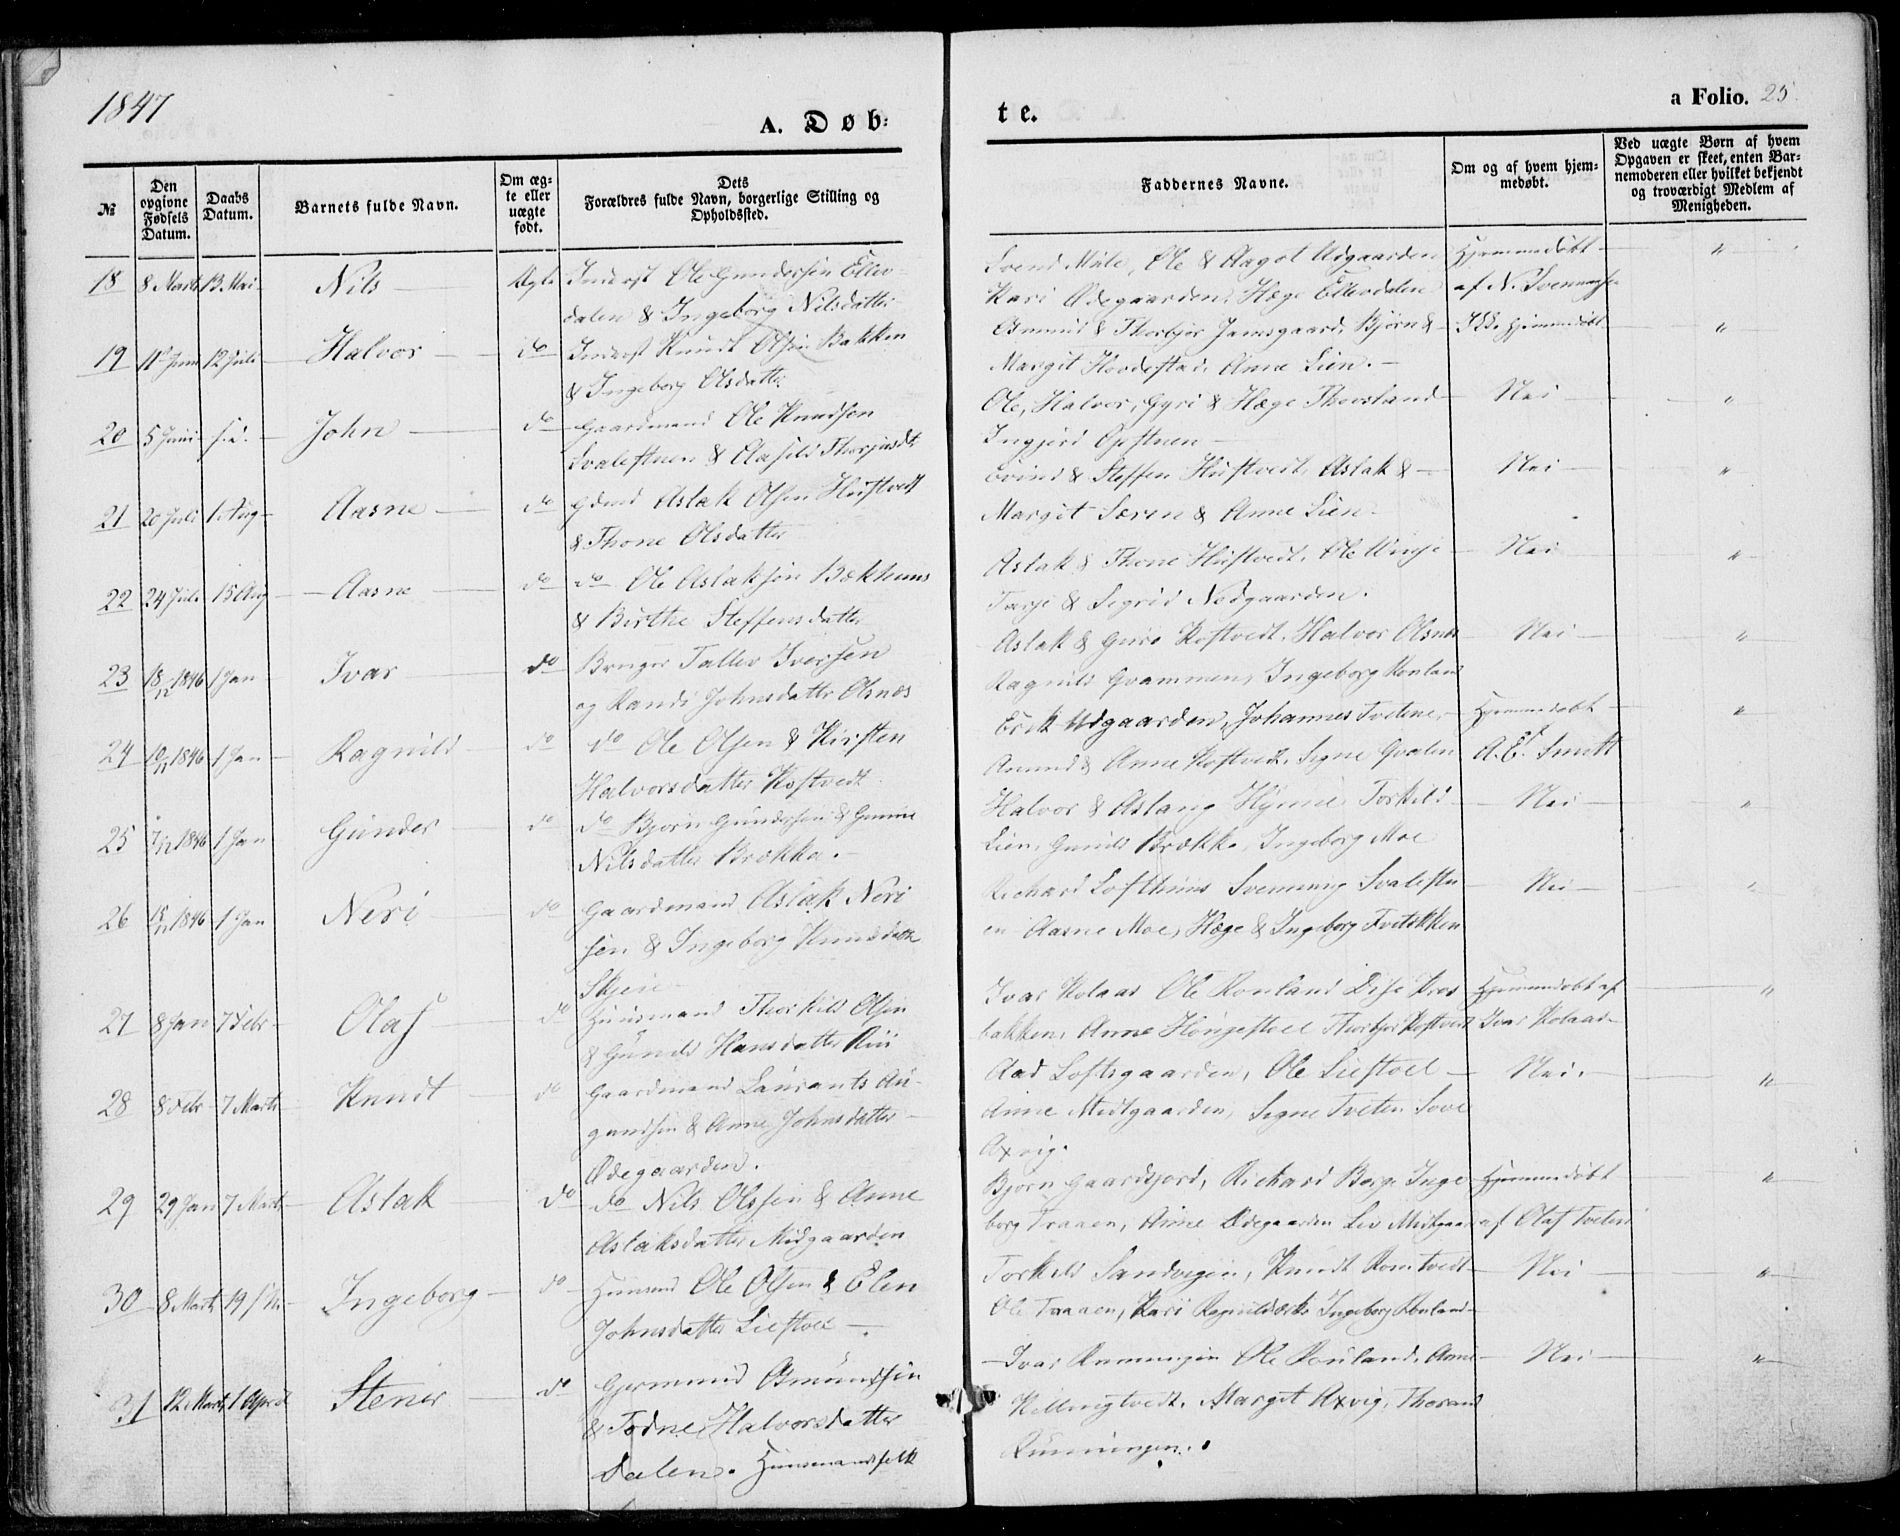 1847
A. Døb-
te.
a Folio. 25.
№
Den opgivne Fødsels Datum.
Daabs Datum.
Barnets fulde Navn.
Om ægte eller uægte født.
Dets Forældres fulde Navn, borgerlige Stilling og Opholdssted.
Faddernes Navne.
Om og af hvem hjemmedøbt.
Ved uægte Børn af hvem Opgaven er skeet, enten Barnemoderen eller hvilket bekjendt og troværdigt Medlem af Menigheden.
18 8 Marts 13 Mai Nils Ægte Inderst Ole Gundersen Ellev-
dalen & Ingeborg Nilsdatter
Svend Mule, Ole & Aagot Udgaarden Hjemmedøbt "
Kari Ødegaarden, Hæge Ellevdalen af N. Svenningsen
19 Juni 12 Juli Halvor do Inderst Knudt Olsen Bakken
& Ingeborg Olsdatter
Asmund & Thorbjør Jamsgaard, Bjørn & Ikke hjemmedøbt "
Margit Hovdestad, Anne Lien.
20 5 Juni s.d. John do Gaardmand Ole Knudsen
Svalestuen & Aasild
Ole, Halvor, Gyri & Hæge Thovsland Nei "
Ingjerd
21 20 Juli 1 Aug Aasne do Gdmd Aslak Olsen Hustvedt
& Thone Olsdatter
Eivind & Steffen Hustvedt, Aslak & Nei "
Margit Særen & Anne Lien.
22 24 Juli 15 Aug Aasne do do Ole Aslaksøn Bækhuus
& Birthe Steffensdatter
Aslak & Thone Hustvedt, Ole Vinje Nei "
Tarje & Sigrid Nedgaarden.
23 18/12 1846 1 Jan Ivar do Bruger Tallev Iversen
og Randi Johnsdatter Olsnæs
Aslak & Guro Kostvedt, Halvor Olsnæs Nei "
Ragnild Gvammen, Ingeborg Rouland
24 10/11 1846 1 Jan Ragnild do do Ole Olsen & Kirsten
Halvorsdatter Kostvedt
Erik Udgaarden, Johannes Tvetene, Hjemmedøbt "
Amund & Anne Kostvedt, Signe Gvalen A. E. Smitt
25 7/12 1846 1 Jan Gunder do do Bjørn Gundersen &
Nilsdatter Brække.
Halvor & Aslaug Torkild Nei "
Lien, Gunild Brække, Ingeborg Moe
26 1846 1 Jan Neri do Gaardmand Aslak Neri
sen & Ingeborg Knudsdatter
Skjeie
Richard Lofthuus Svenning Svalestu Nei "
en Aasne Moe, Hæge & Ingeborg Tveitekken
27 8 Jan 7 Febr Olaf do Huusmand Thorkild Olsen
& Gunild Hansdatter Rui
Ivar Kolaas Ole Rouland Dise Kros Hjemmedøbt af "
bakken, Anne Hougestoel Thorbjør Kostvedt Ivar Kolaas
28 8 Febr 7 Marts Knudt do Gaardmand Laurants Au-
gundsen & Anne Johnsdatter
Ødegaarden.
Aad Loftsgaarden, Ole Liestoel Nei. "
Anne Midtgaarden, Signe Tveten Sove
Axvig.
29 29 Jan 7 Marts Aslak do do Nils Olssen & Anne
Aslaksdatter Midgaarden
Bjørn Gaardsjord, Richard Berge Inge Hjemmedøbt "
borg Traaen, Anne Ødegaarden Liv Midtgaar af Olaf Tveten
30 8 Marts 19 Ingeborg do Huusmd Ole Olsen & Elen
Johnsdatter Liestoel
Torkild Sandvigen, Knudt Romtvedt Nei "
Ole Traaen, Kari Ingeborg Rouland
31 12 Marts 1 April Stener do Gjermund Asmundsen
& Todne Halvorsdatter
Dalen. Huusmandsfolk
Ivar Runningen Ole Rouland, Anne Nei "
Killingtvedt, Margit Axvig, Thorand
Runningen.